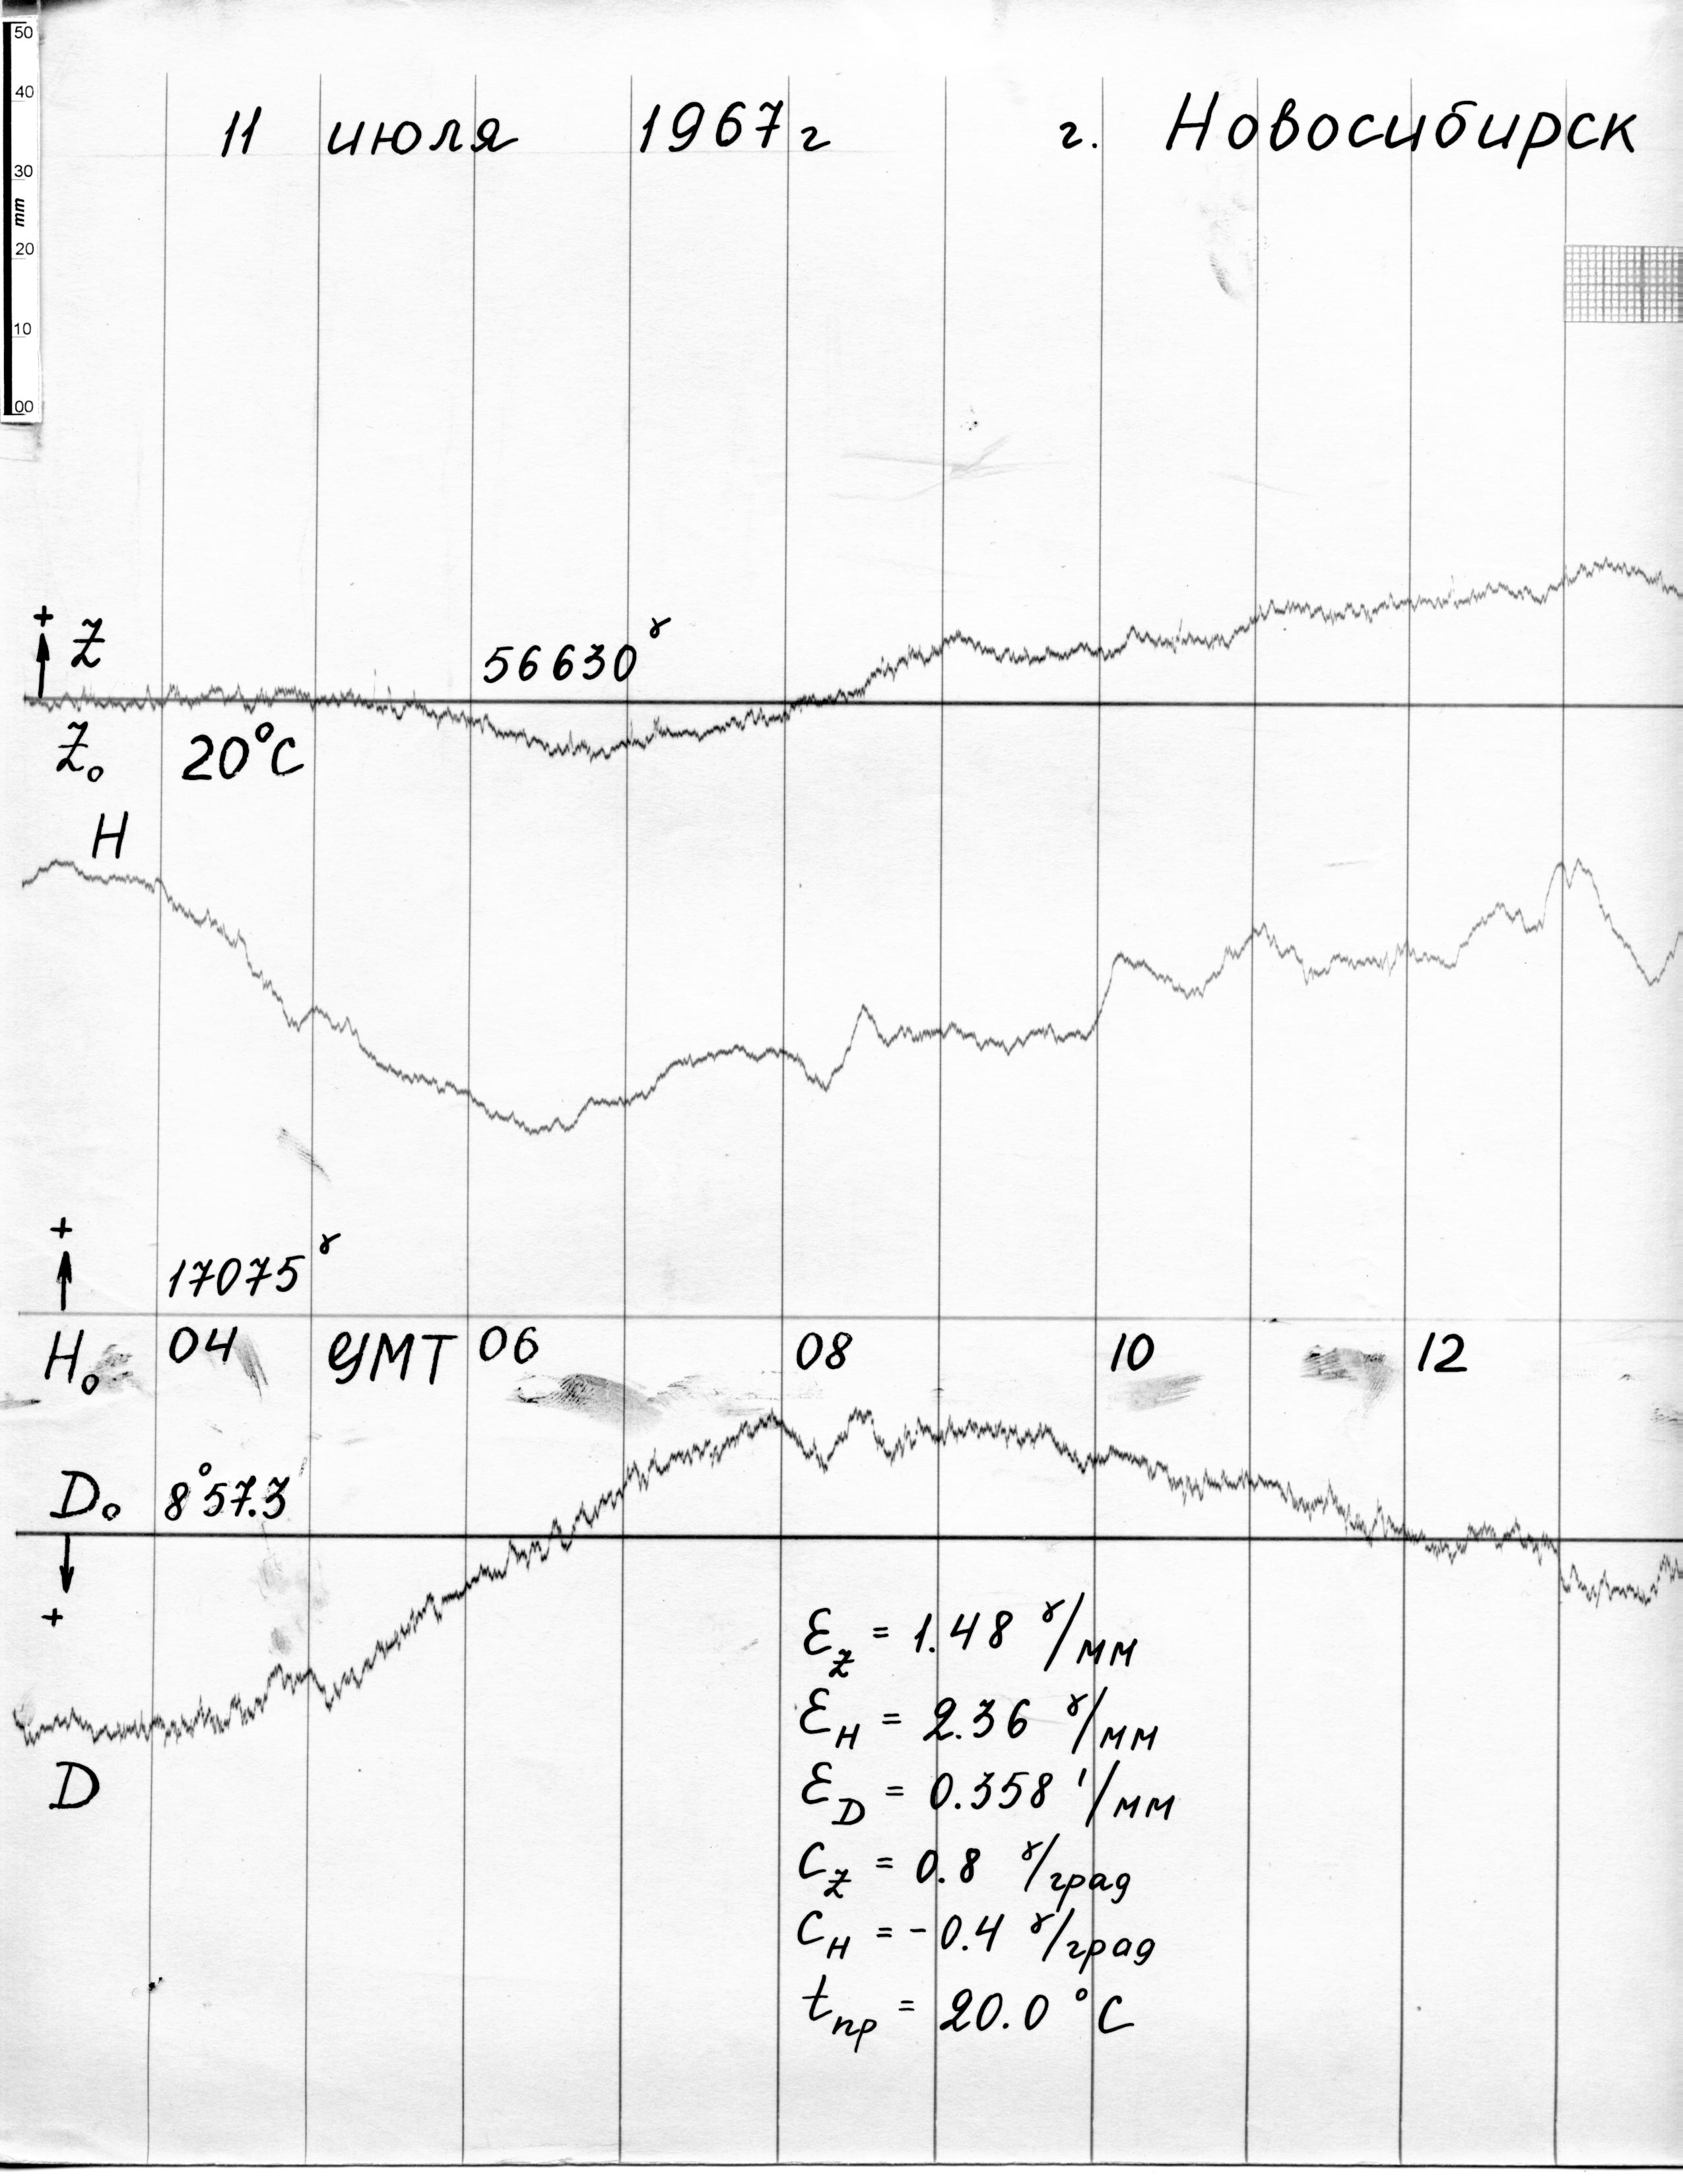 50
40
30
mm
20
10
00
11 июля 1967 г г. Новосибирск
+
Z
56630 ɣ
Z₀ 20°C
H
+
17075 ɣ
H₀ 04 УМТ 06 08 10 12
D₀ 8°57.3'
+
Ɛz = 1.48 ɣ/мм
ƐH = 2.36 ɣ/мм
ƐD = 0.358 '/мм
D
Cz = 0.8 ɣ/град
CH = -0.4 ɣ/град
tпр = 20.0 °C